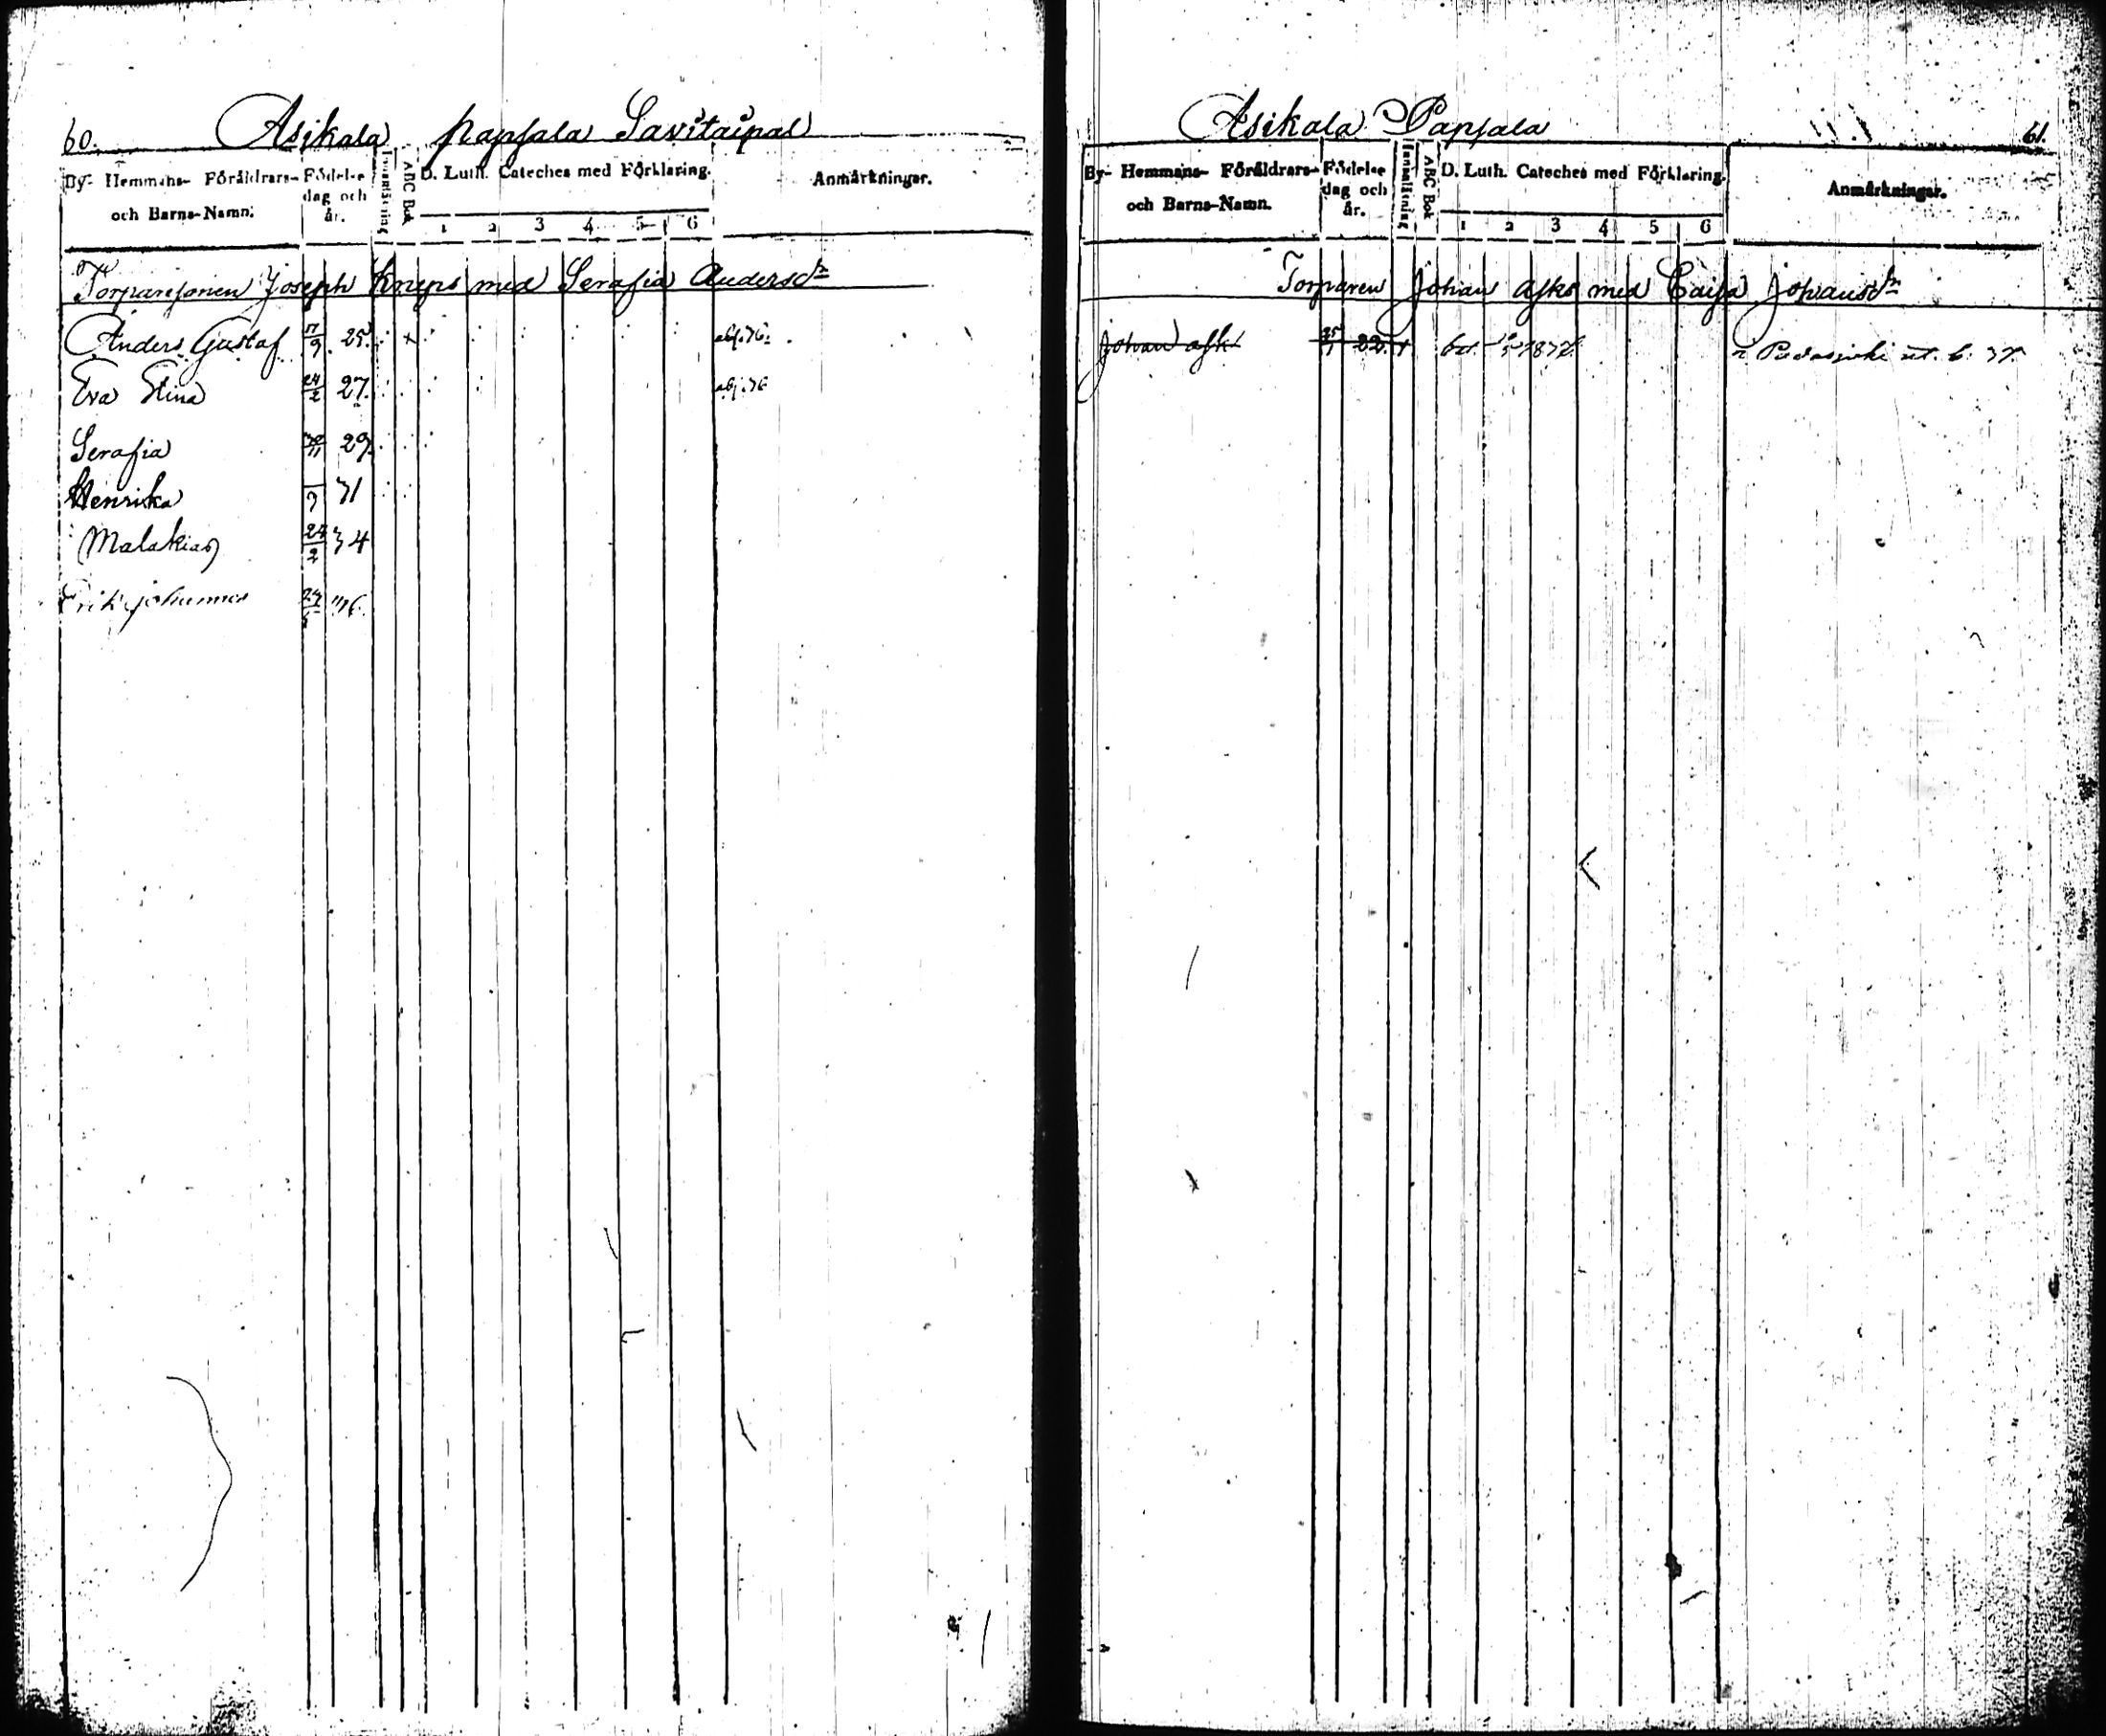 60. Asikala papsala Savitaipal
By- Hemmans- Föräldrars- och Barns-Namn. Födelse dag och år. Innanläsning ABC Bok D. Luth. Cateches med Förklaring. Anmärkningar.
1 2 3 4 5 6
Torparesonen Joseph Knips med Serafia Andersdr
Anders Gustaf 17/9 25.
Eva Stina 24/2 27.
Serafia 30/11 29.
Henrika /9 31
Malakias 24/2 34
Erik Johannes 36.
Asikala Papsala 61.
By- Hemmans- Föräldrars- och Barns-Namn. Födelse dag och år. Innanläsning ABC Bok D. Luth. Cateches med Förklaring. Anmärkningar.
1 2 3 4 5 6
Torparen Johan Asks med Caisa Johansdr
Johan Ask 25/1 22. Padasjoki ut. b. 37.